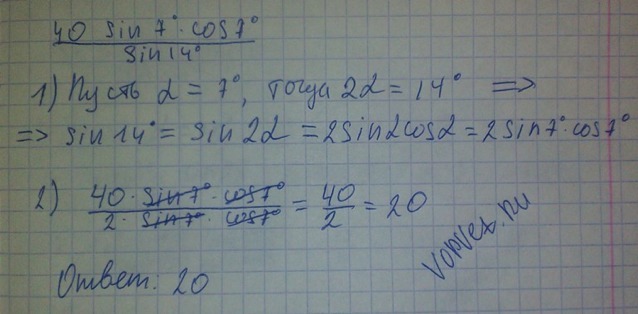 40 sin 7° · cos 7°
sin 14°
1) Пусть α = 7°, тогда 2α = 14° ⇒
⇒ sin 14° = sin 2α = 2 sin α cos α = 2 sin 7° · cos 7°
2) 40 · sin 7° · cos 7° / 2 · sin 7° · cos 7° = 40/2 = 20
Vopvet.Ru
Ответ: 20